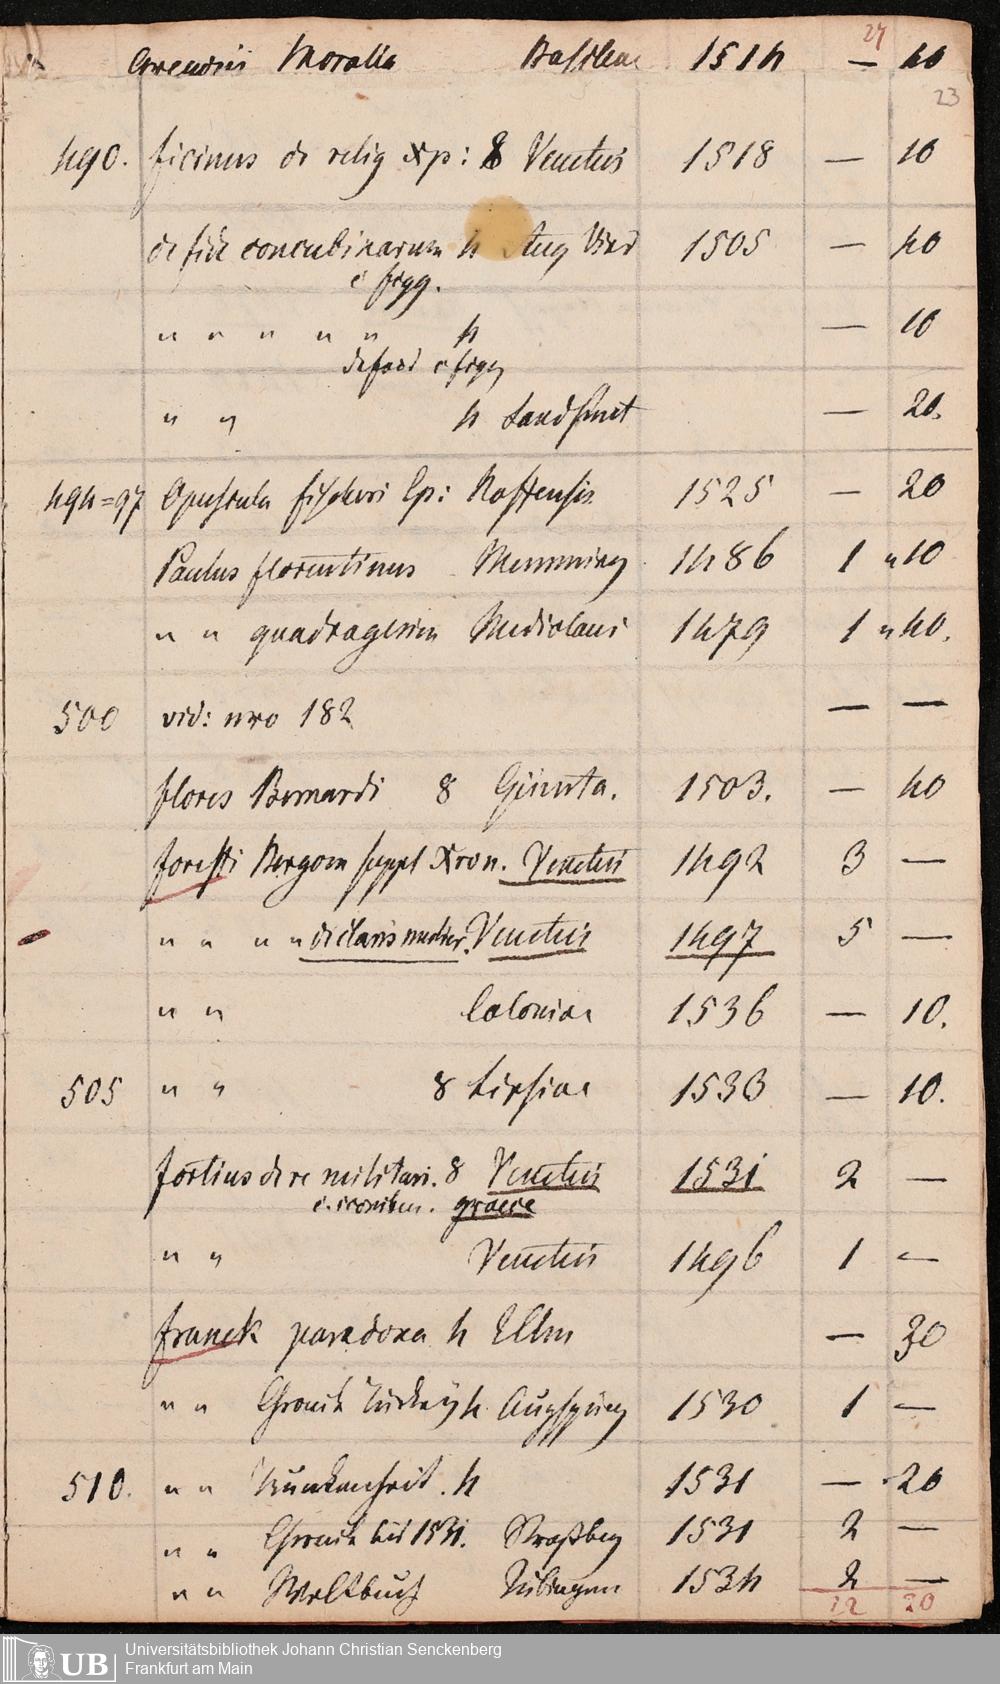 27
Moralia Basileae 1514 — 40
23
490. ficinus de relig xp: 8 Venetiis 1518 — 10
de fide concubinarum 4 Aug Vind 1505 — 40
c figg.
" " " " " 4 — 10
defect c figg
" " 4 Landshut — 20.
494=97 Opuscula fischeri Ep: Roffensis 1525 — 20
Paulus florentinus Memming 1486 1 " 10
" " quadragesim Mediolani 1479 1 " 40.
500 vid: nro 182 — —
flores Bernardi 8 Giunta. 1503. — 40
foresti Bergom suppl Xron. Venetiis 1492 3 —
" " " " de claris mulier. Venetiis 1497 5 —
" " Coloniae 1536 — 10.
505 " " 8 Lipsiae 1533 — 10.
fortius de re militari. 8 Venetiis 1531 2 —
c. iconibus. graece
" " Venetiis 1496 1 —
franck paradoxa 4 Ulm — 30
" " Chronik Türkey 4 Augspurg 1530 1 —
510. " " Trunkenheit. 4 1531 — 20
" " Chronik bis 1531. Straßbg 1531 2 —
" " Weltbuch Tübingen 1534 2 —
22 20
UB Universitätsbibliothek Johann Christian Senckenberg
Frankfurt am Main